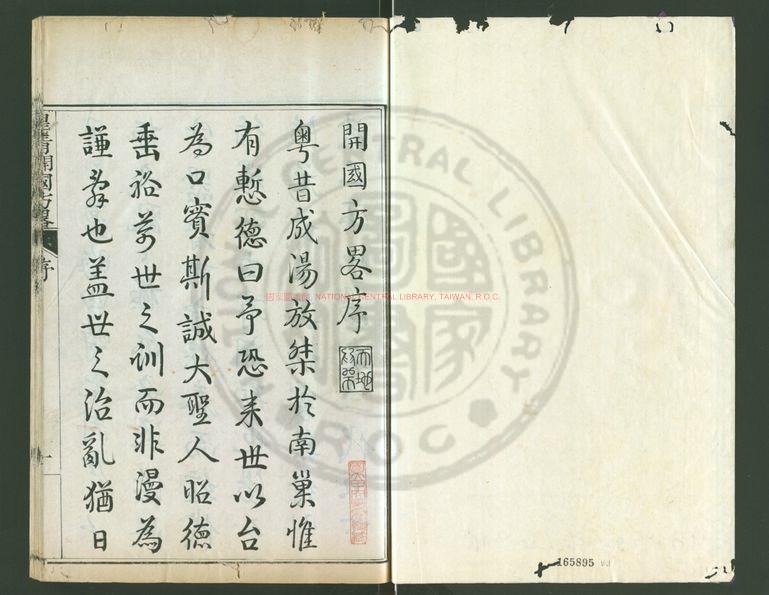 開國方畧序
粵昔成湯放桀扵南巢惟
有慙德曰予恐来世以台
為口實斯誠大聖人昭德
垂裕萬世之训而非漫為
謙辤也盖世之治亂猶日
皇清開國方畧
序
一
NATIONAL CENTRAL LIBRARY, TAIWAN, R.O.C.
CENTRAL LIBRARY
R.O.C
165895